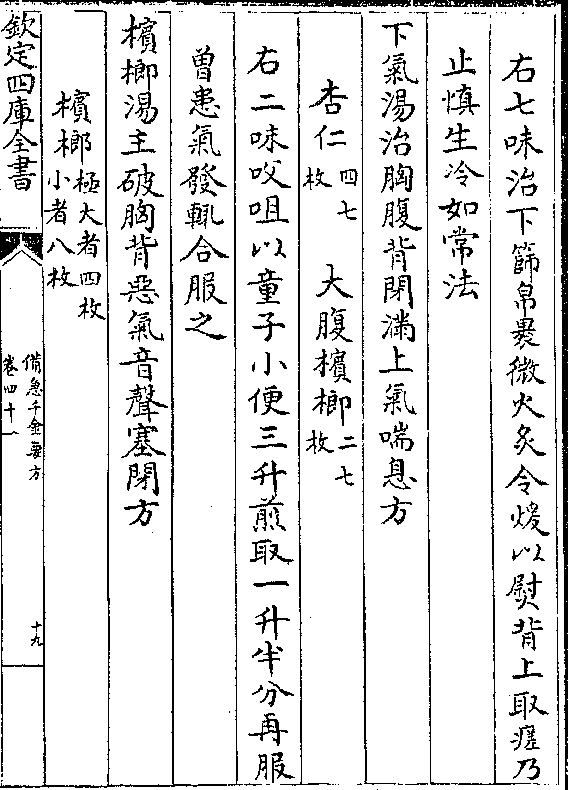 右七味治下篩帛裹微火炙令煖以熨背上取瘥乃
止慎生冷如常法
下氣湯治胸腹背閉滿上氣喘息方
杏仁四七枚 大腹檳榔二七枚
右二味㕮咀以童子小便三升煎取一升半分再服
曽患氣發輒合服之
檳榔湯主破胸背惡氣音聲塞閉方
檳榔極大者四枚小者八枚
欽定四庫全書
備急千金要方
卷四十一
十九